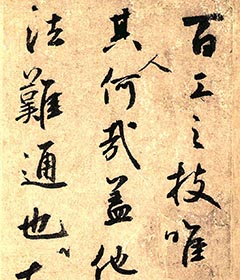 百工之技唯
其人何哉盖他
法難通也